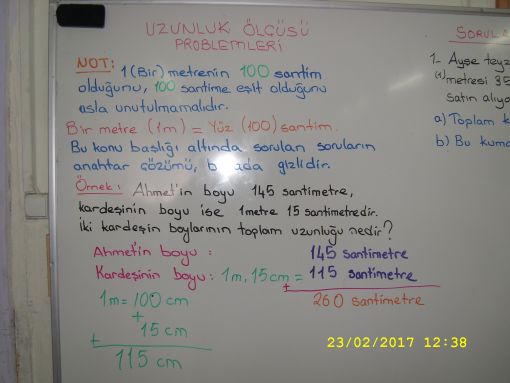 UZUNLUK ÖLÇÜSÜ
PROBLEMLERİ
NOT:
1 (Bir) metrenin 100 santim
olduğunu, 100 santime eşit olduğunu
asla unutulmamalıdır.
Bir metre (1m) = Yüz (100) santim.
Bu konu başlığı altında sorulan soruların
anahtar çözümü, burada gizlidir.
Örnek: Ahmet'in boyu 145 santimetre,
kardeşinin boyu ise 1metre 15 santimetredir.
İki kardeşin boylarının toplam uzunluğu nedir?
Ahmet'in boyu : 145 santimetre
Kardeşinin boyu: 1m, 15cm = 115 santimetre
+
260 santimetre
1m = 100 cm
+
15 cm
+
115 cm
SORULA
1- Ayşe teyz
(1) metresi 35
satın alıyo
a) Toplam k
b) Bu kuma
23/02/2017 12:38